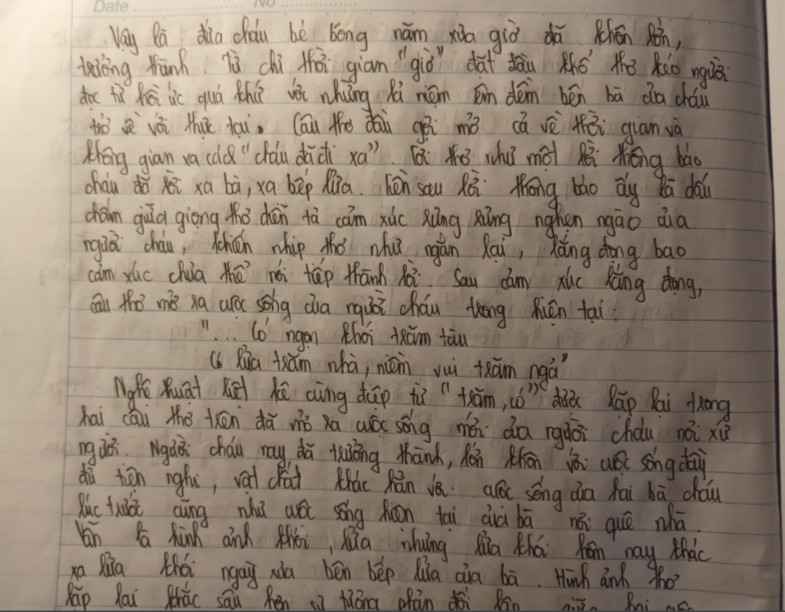 Date No
Vậy là đứa cháu bé bỏng năm xưa giờ đã khôn lớn,
trưởng thành. Từ chỉ thời gian "giờ" đặt đầu khổ thơ kéo người
đọc từ hồi ức quá khứ với những kỉ niệm êm đềm bên bà của cháu
trở về với thực tại. Câu thơ đầu gợi mở cả về thời gian và
không gian xa cách "cháu đã đi xa". Lời thơ như một lời thông báo
cháu đã rời xa bà, xa bếp lửa. Liền sau lời thông báo ấy là dấu
chấm giữa giọng thơ diễn tả cảm xúc rưng rưng nghẹn ngào của
người cháu, khiến nhịp thơ như ngắn lại, lắng đọng bao
cảm xúc chưa thể nói tiếp thành lời. Sau cảm xúc lắng đọng,
câu thơ mở ra cuộc sống của người cháu trong hiện tại:
"... Có ngọn khói trăm tàu
Có lửa trăm nhà, niềm vui trăm ngả"
Nghệ thuật liệt kê cùng điệp từ "trăm, có" được lặp lại trong
hai câu thơ trên đã mở ra cuộc sống mới của người cháu nơi xứ
người. Người cháu nay đã trưởng thành, lớn khôn với cuộc sống đầy
đủ tiện nghi, vật chất khác hẳn với cuộc sống của hai bà cháu
lúc trước cũng như cuộc sống hiện tại của bà nơi quê nhà.
Vẫn là hình ảnh khói, lửa nhưng lửa khói hôm nay khác
xa lửa khói ngày xưa bên bếp lửa của bà. Hình ảnh thơ
lặp lại khắc sâu hơn sự tương phản đối lập giữa hai